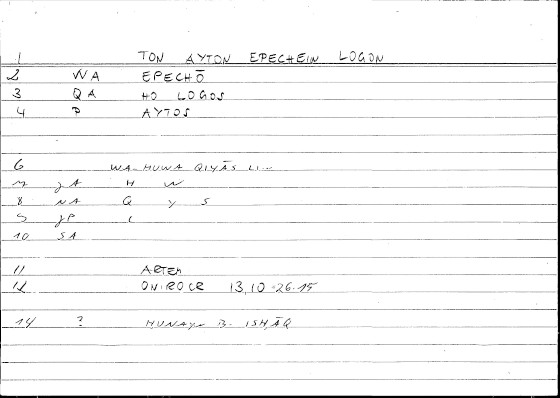 1 TON AYTON EPECHEIN LOGON
2 WA EPECHŌ
3 QA HO LOGOS
4 P AYTOS
6 WA-HUWA QIYĀS LI--
7 JA H W
8 NA Q Y S
9 JP L
10 SA
11 ARTEM
12 ONIROCR 13,10-26.15
14 ? HUNAYN B. ISHĀQ